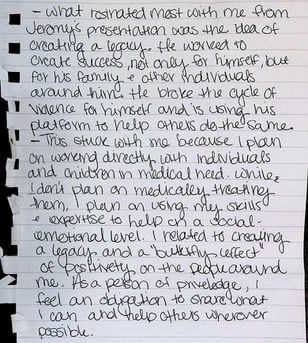 - What resinated most with me from
Jeromy's presentation was the idea of
creating a legacy. He worked to
create success, not only for himself, but
for his family & other individuals
around him. He broke the cycle of
violence for himself and is using his
platform to help others do the same.
- This stuck with me because I plan
on working directly with individuals
and children in medical need. While
I don't plan on medically treating
them, I plan on using my skills
& expertise to help on a social-
emotional level. I related to creating
a legacy and a "butterfly effect"
of positivity on the people around
me. As a person of priveledge, I
feel an obligation to share what
I can and help others wherever
possible.